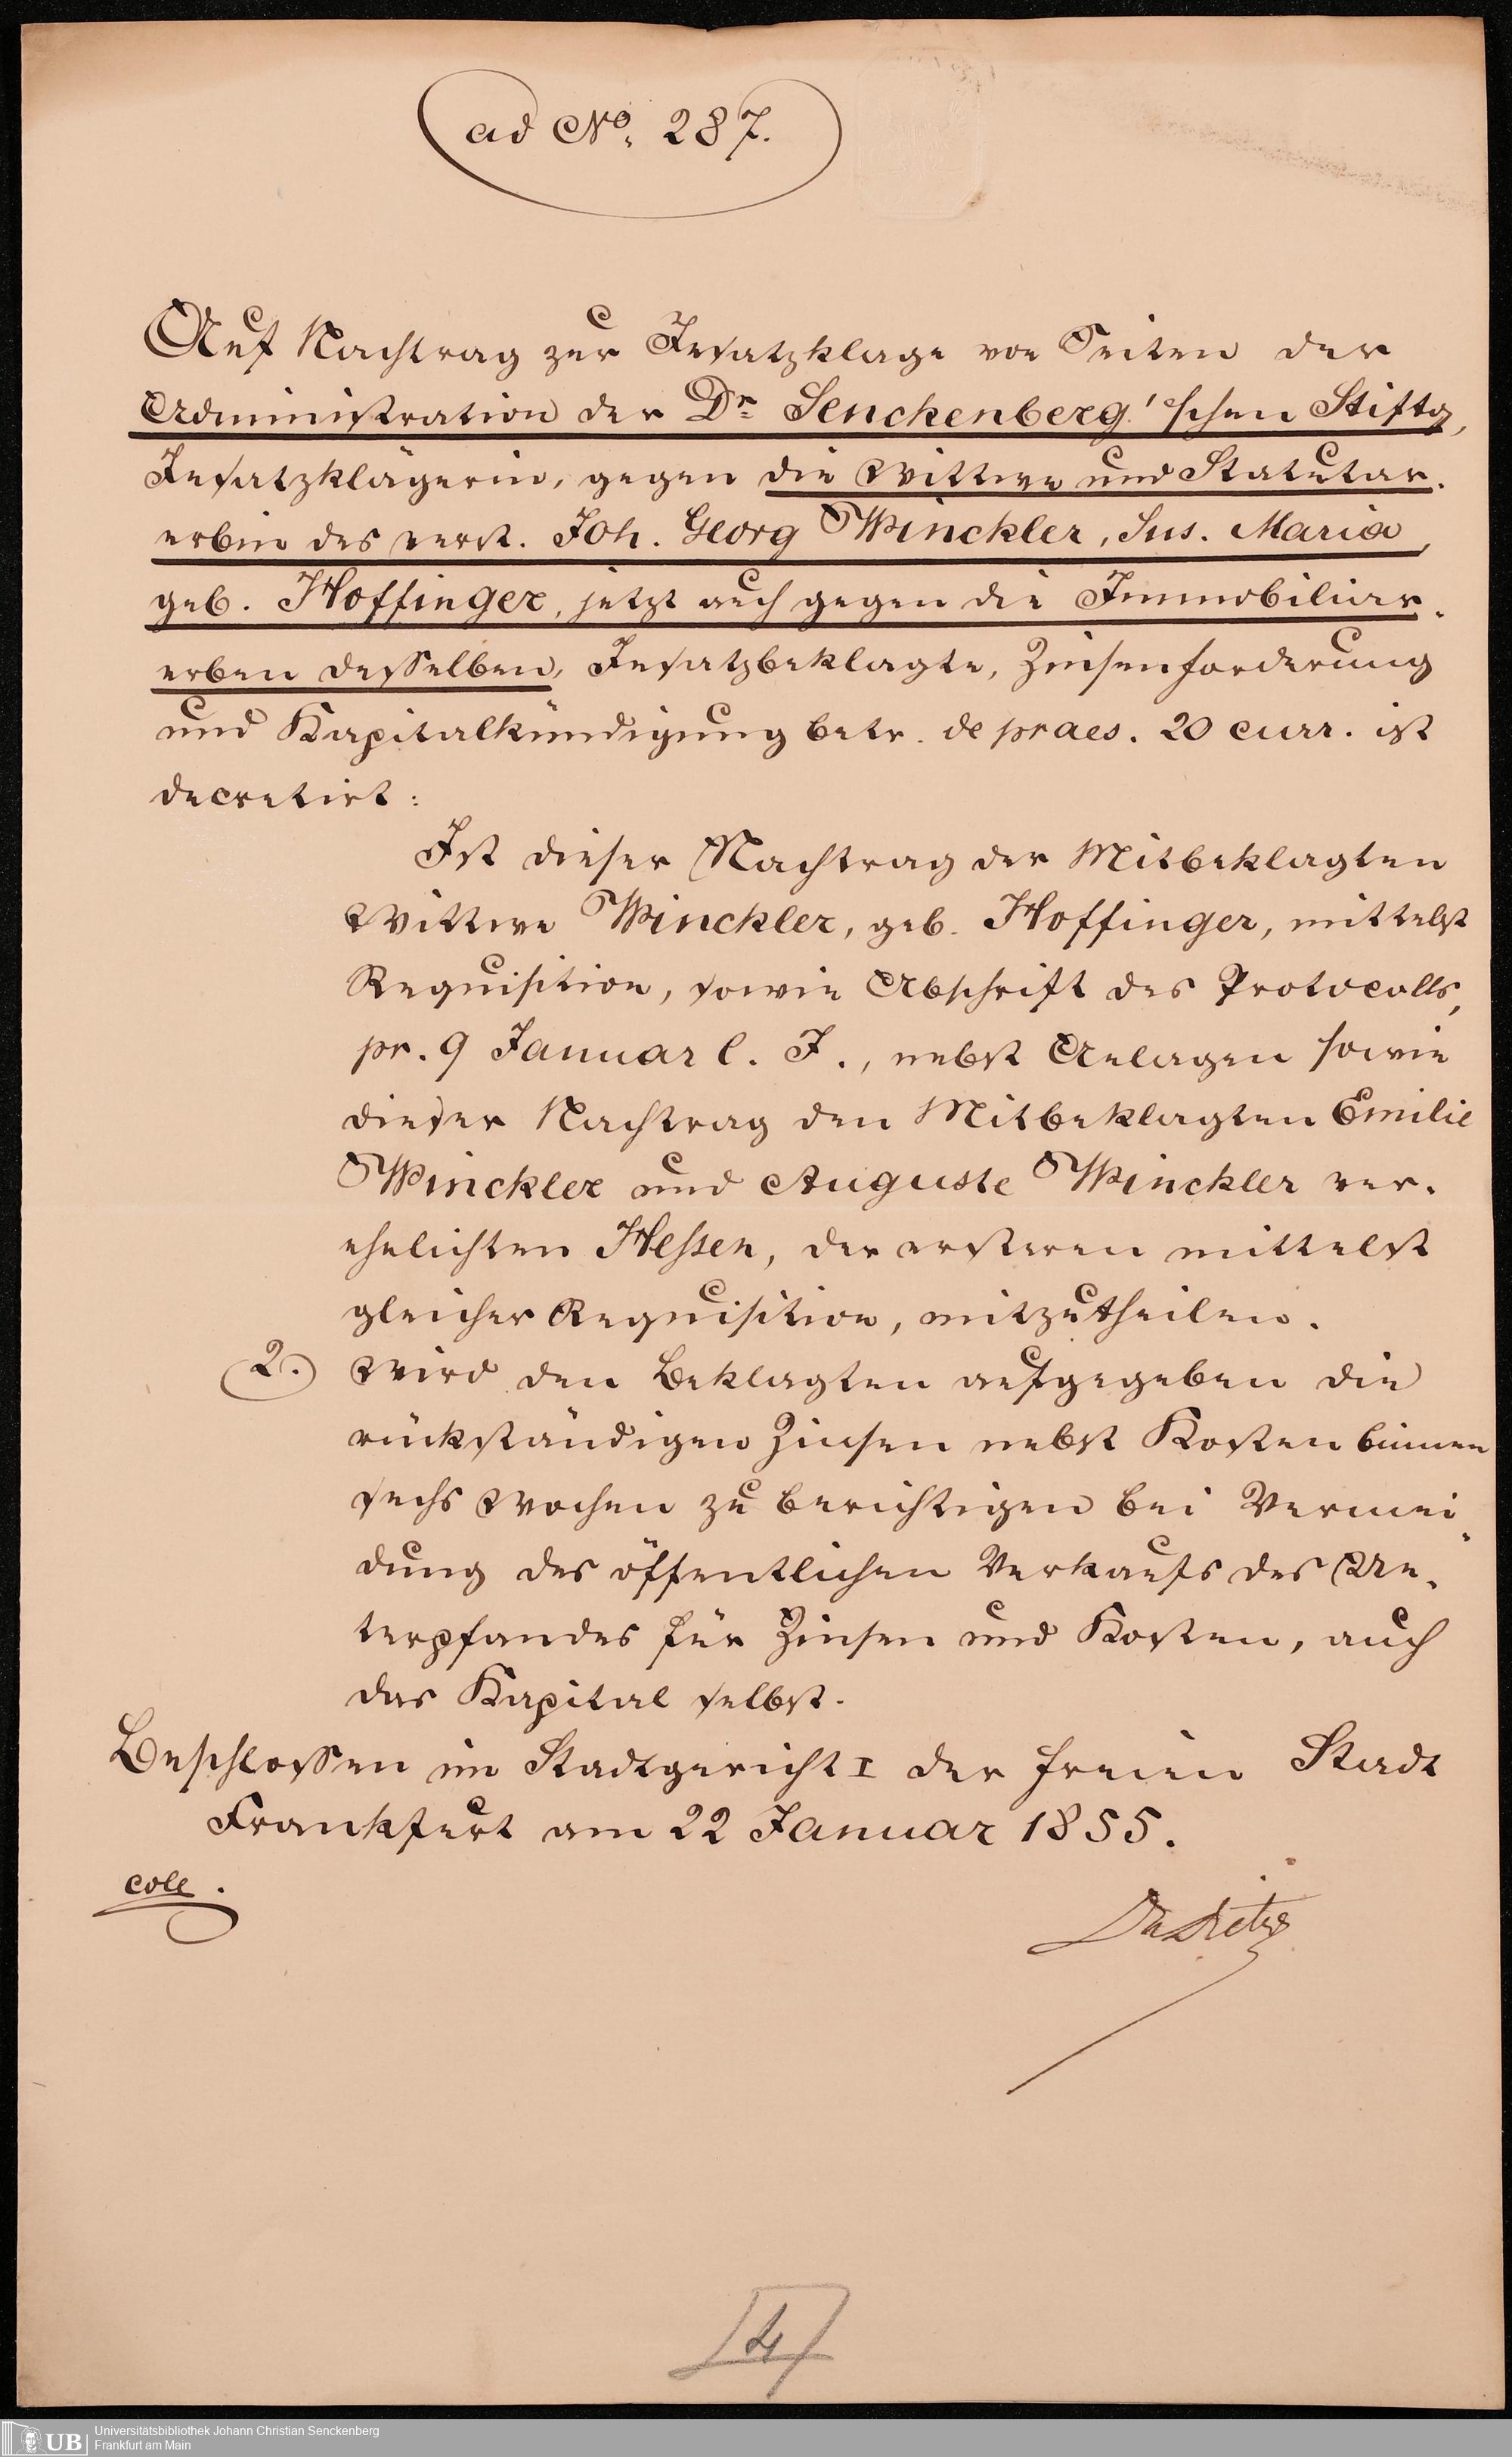 ad No. 287.
Auf Nachtrag zur Insatzklage von Seiten der
Administration der Dr. Senckenberg'schen Stiftg,
Insatzklägerin, gegen die Wittwe und Statutar-
erbin des verst. Joh. Georg Winckler, Sus. Maria,
geb. Hoffinger, jetzt auch gegen die Immobiliar-
erben desselben, Insatzbeklagte, Zinsenforderung
und Kapitalkündigung betr. de praes. 20 curr. ist
decretirt:
Ist dieser Nachtrag der Mitbeklagten
Wittwe Winckler, geb. Hoffinger, mittelst
Requisition, sowie Abschrift des Protocolls,
pr. 9 Januar l. J., nebst Anlagen sowie
dieser Nachtrag den Mitbeklagten Emilie
Winckler und Auguste Winckler ver-
ehelichten Hessen, der ersteren mittelst
gleicher Requisition, mitzutheilen.
2. Wird den Beklagten aufgegeben die
rückständigen Zinsen nebst Kosten binnen
sechs Wochen zu berichtigen bei Vermei-
dung des öffentlichen Verkaufs des Un-
terpfandes für Zinsen und Kosten, auch
das Kapital selbst.
Beschlossen im Stadtgericht I der freien Stadt
Frankfurt am 22 Januar 1855.
coll.
4
UB Universitätsbibliothek Johann Christian Senckenberg
Frankfurt am Main